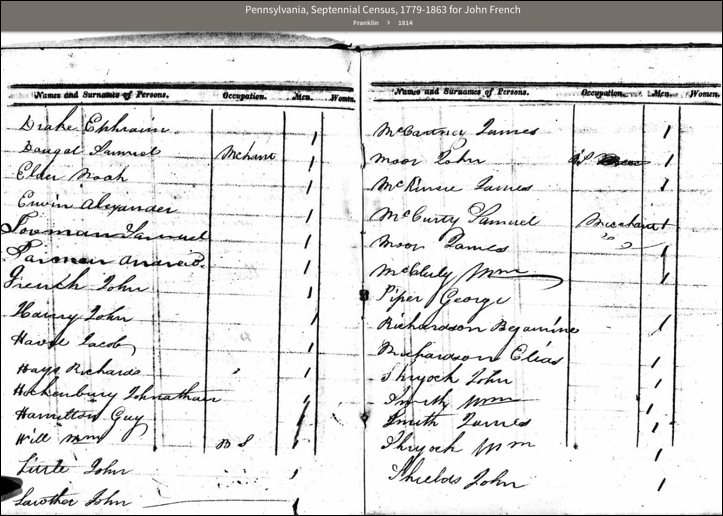 Pennsylvania, Septennial Census, 1779-1863 for John French
Franklin > 1814
Names and Surnames of Persons. Occupation. Men. Women.
Drake Ephraim 1
Dougal Samuel Mchant 1
Elder Noah 1
Erwin Alexander
Fooman Samuel 1
French John 1
Harry John 1
Jacob 1
Hays Richard 1
Hockenbury Johnathan 1
Hamilton Guy 1
Will Wm B S 1
Little John 1
Lawther John 1
Names and Surnames of Persons. Occupation. Men. Women.
McCartney James 1
Moor John 1
James 1
McCurty Samuel 1
Moor James 1
Wm 1
Piper George
Richardson Begamine 1
Richardson Elias 1
Shryock John 1
Smith Wm 1
Smith James 1
Shryock Wm 1
Shields John 1